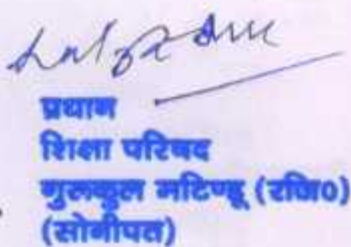 प्रधान
शिक्षा परिषद
गुरूकुल मटिण्डू (रजि०)
(सोनीपत)